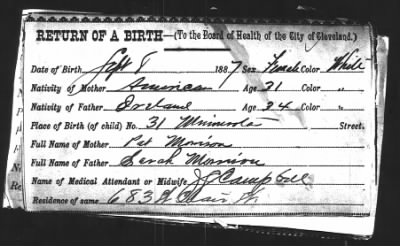 RETURN OF A BIRTH—(To the Board of Health of the City of Cleveland.)
Date of Birth, Sept 8 1887 Sex Female Color White
Nativity of Mother American Age 31 Color "
Nativity of Father Ireland Age 34 "
Place of Birth (of child) No. 31 Minnesota Street.
Full Name of Mother Pet Morrison
Full Name of Father Sarah Morrison
Name of Medical Attendant or Midwife J Campbell
Residence of same 683 St Clair St